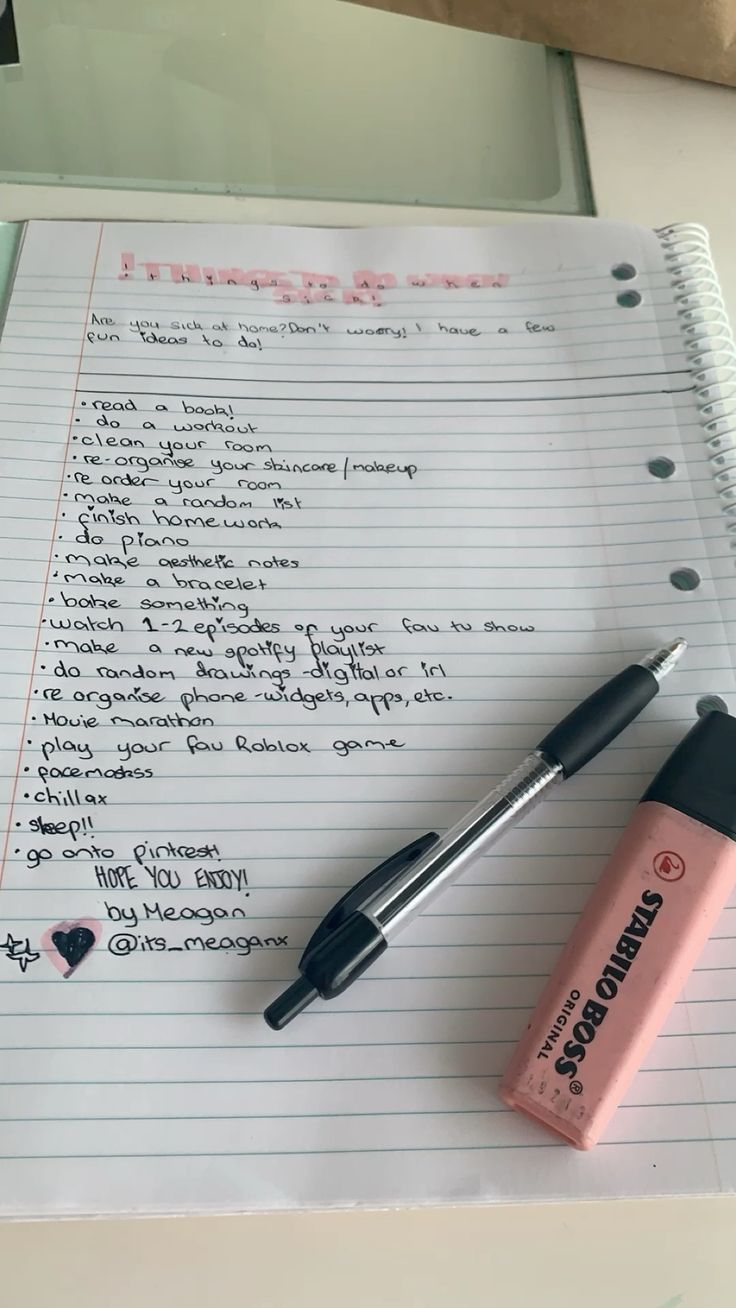 ! THINGS TO DO WHEN
SICK!
! things to do when
sick!
Are you sick at home? Don't worry! I have a few
fun ideas to do!
• read a book!
• do a workout
• clean your room
• re-organise your skincare/makeup
• re order your room
• make a random list
• finish homework
• do piano
• make aesthetic notes
• make a bracelet
• bake something
• watch 1-2 episodes of your fav tv show
• make a new spotify playlist
• do random drawings - digital or irl
• re organise phone - widgets, apps, etc.
• Movie marathon
• play your fav Roblox game
• facemaskss
• chillax
• sleep!!
• go onto pintrest!
HOPE YOU ENJOY!
by Meagan
@its_meaganx
STABILO BOSS®
ORIGINAL